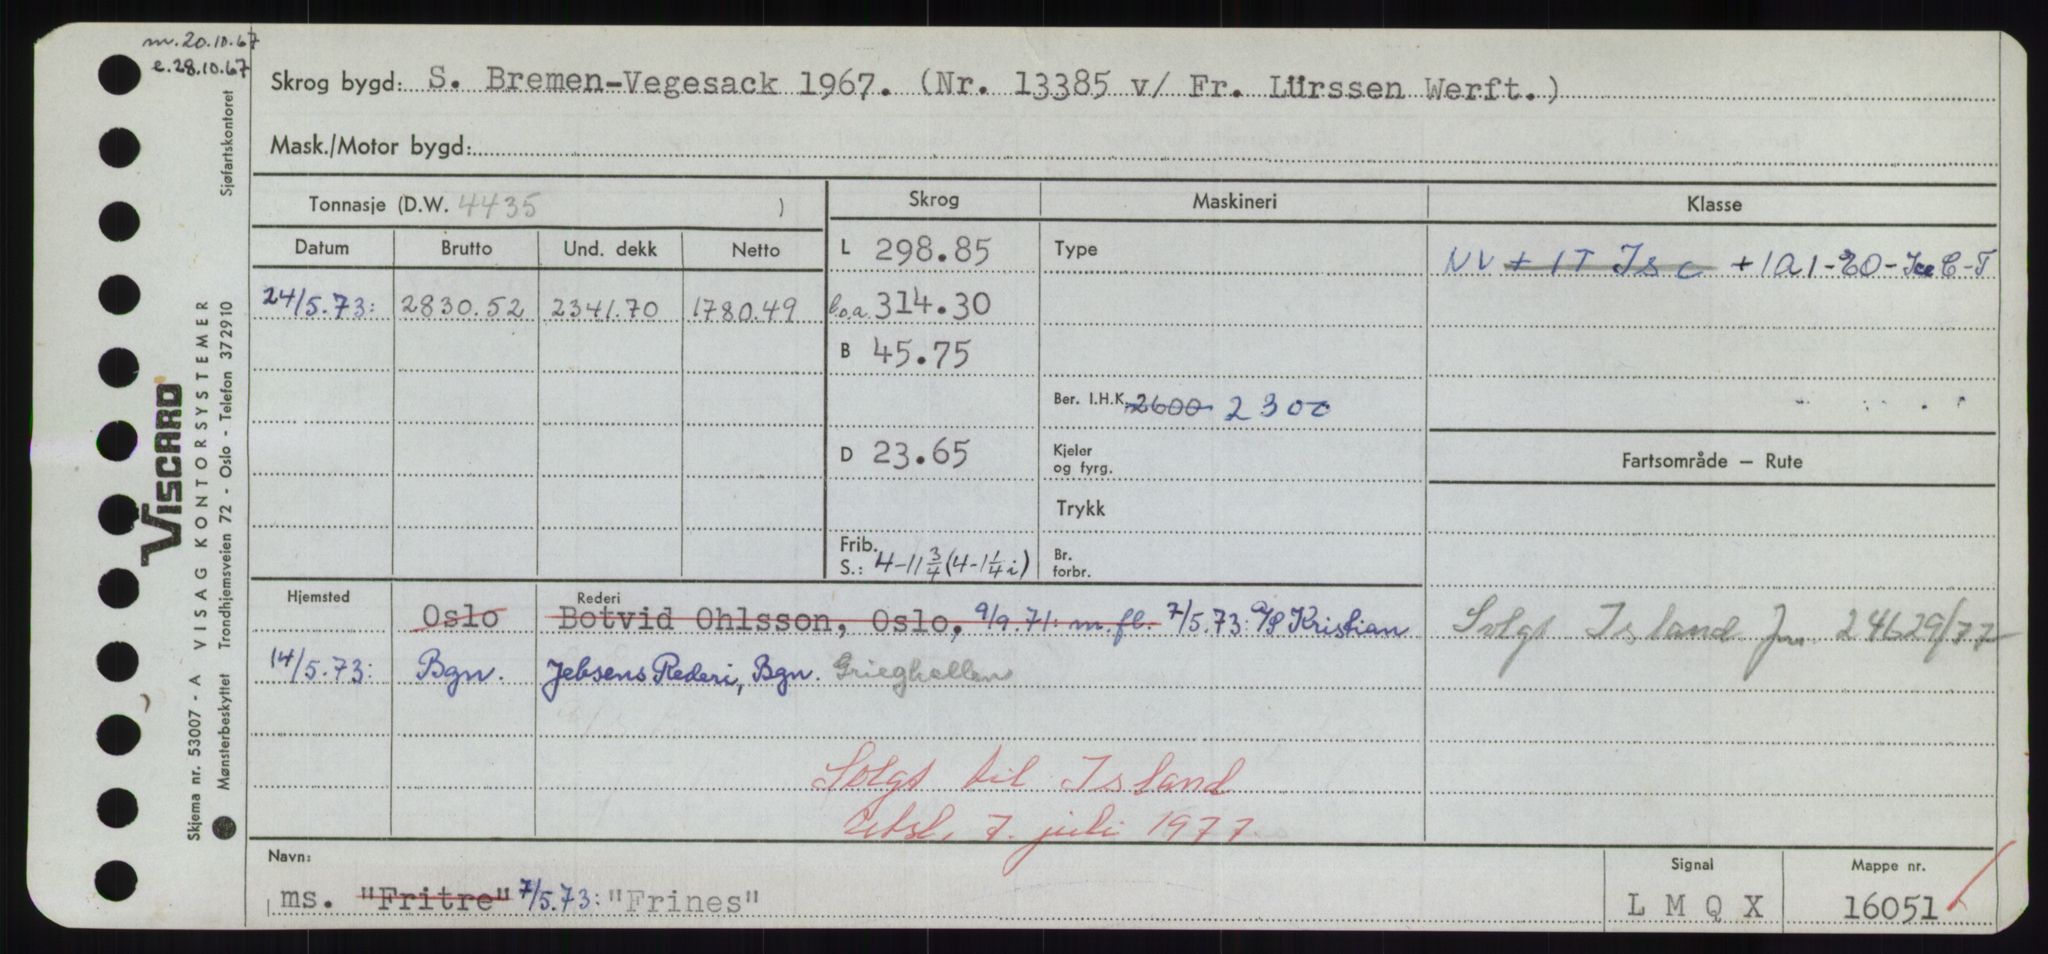 m. 20.10.67
e. 28.10.67
Skrog bygd: S. Bremen-Vegesack 1967. (Nr. 13385 v/ Fr. Lürssen Werft.)
Mask./Motor bygd:
Tonnasje (D.W. 4435 )
Skrog Maskineri Klasse
Datum Brutto Und. dekk Netto
L 298.85 Type NV + 1T Is C + 1A1-E0-Ice C-T
24/5.73: 2830.52 2341.70 1780.49 l.o.a. 314.30
B 45.75
Ber. I.H.K. 2600 2300
D 23.65 Kjeler og fyrg.
Fartsområde – Rute
Trykk
Frib. S.: 4-11 3/4 (4-1 1/4 i) Br. forbr.
Hjemsted Rederi
Oslo Botvid Ohlsson, Oslo, 9/9.71: m. fl. 7/5.73 A/S Kristian
Solgt Island Jnr. 24629/77
14/5.73: Bgn. Jebsens Rederi, Bgn. Grieghallen
Solgt til Island
7. juli 1977
Navn: Signal Mappe nr.
ms. "Fritre" 7/5.73: "Frines" L M Q X 16051
Skjema nr. 53007 - A VISAG KONTORSYSTEMER
VISCARD
Mønsterbeskyttet Trondhjemsveien 72 - Oslo - Telefon 372910 Sjøfartskontoret